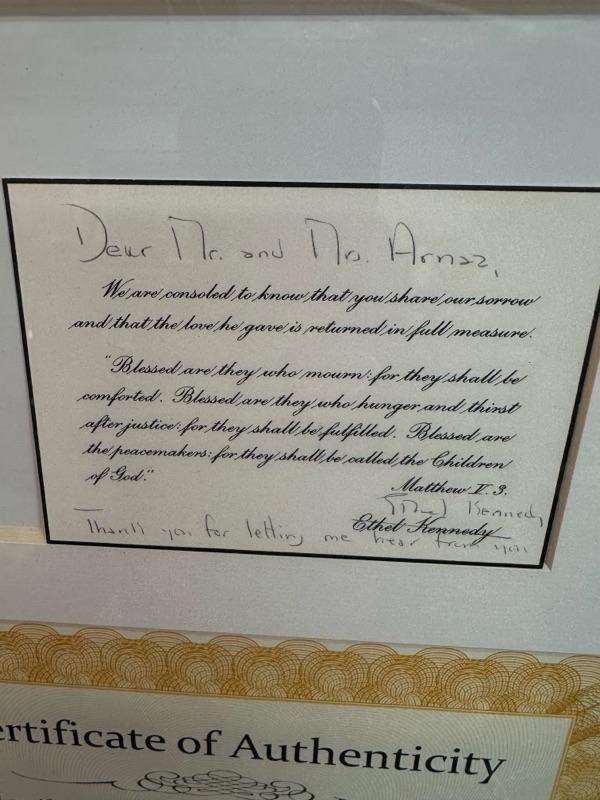 Dear Mr. and Mrs. Arnaz,
We are consoled to know that you share our sorrow
and that the love he gave is returned in full measure.
"Blessed are they who mourn: for they shall be
comforted. Blessed are they who hunger and thirst
after justice: for they shall be fulfilled. Blessed are
the peacemakers: for they shall be called the Children
of God."
Matthew V. 3.
Ethel Kennedy
Ethel Kennedy
Thank you for letting me hear from you
ertificate of Authenticity